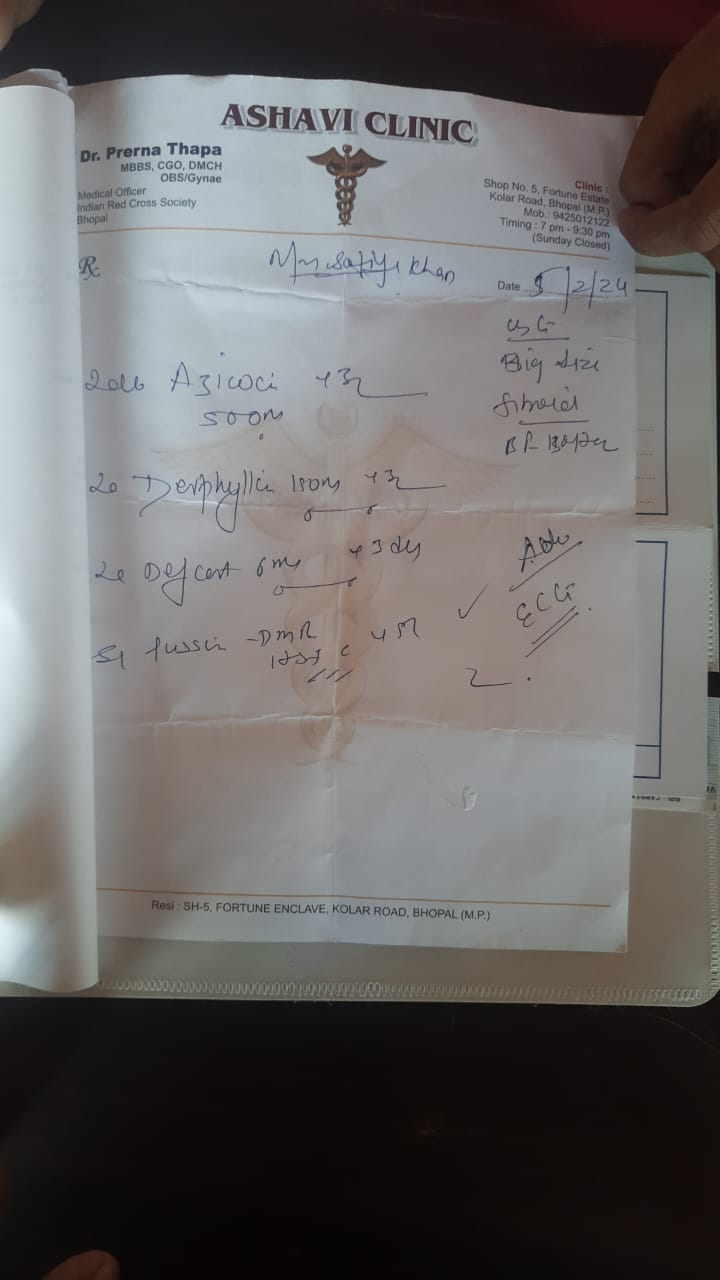 ASHAVI CLINIC
Dr. Prerna Thapa
MBBS, CGO, DMCH
OBS/Gynae
Medical Officer
Indian Red Cross Society
Bhopal
Clinic :
Shop No. 5, Fortune Estate
Kolar Road, Bhopal (M.P.)
Mob.: 9425012122
Timing : 7 pm - 9:30 pm
(Sunday Closed)
℞
Khan
Date 5/2/24
USG
Big Size
fibroid
BP
Azicoci
500m
Deriphyllin 150m
Defcort 6mg x 3 dy
Adv
ECG
Tussin -DMR
2.
Resi : SH-5, FORTUNE ENCLAVE, KOLAR ROAD, BHOPAL (M.P.)